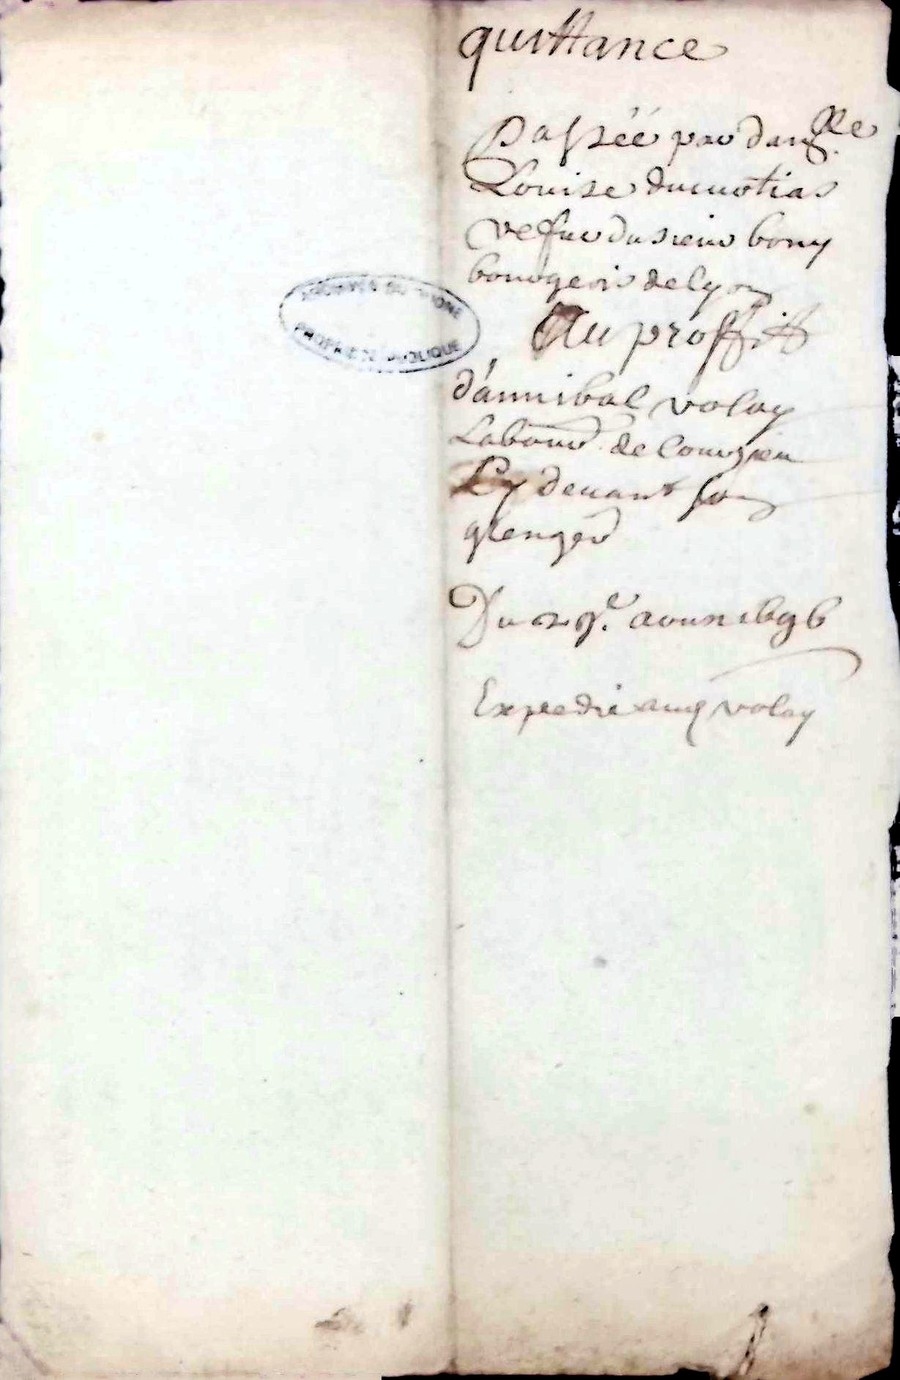 quittance
Passéé par dam.lle
Louise dumotias
vefue du sieur bony
bourgeois de lyon
Au proffit
d'annibal volay
Labour de Courzieu
Cy deuant son
grenger
Du 29.e aoust 1696
Expedié aud volay
ARCHIVES DU RHONE
PROPRIETE PUBLIQUE